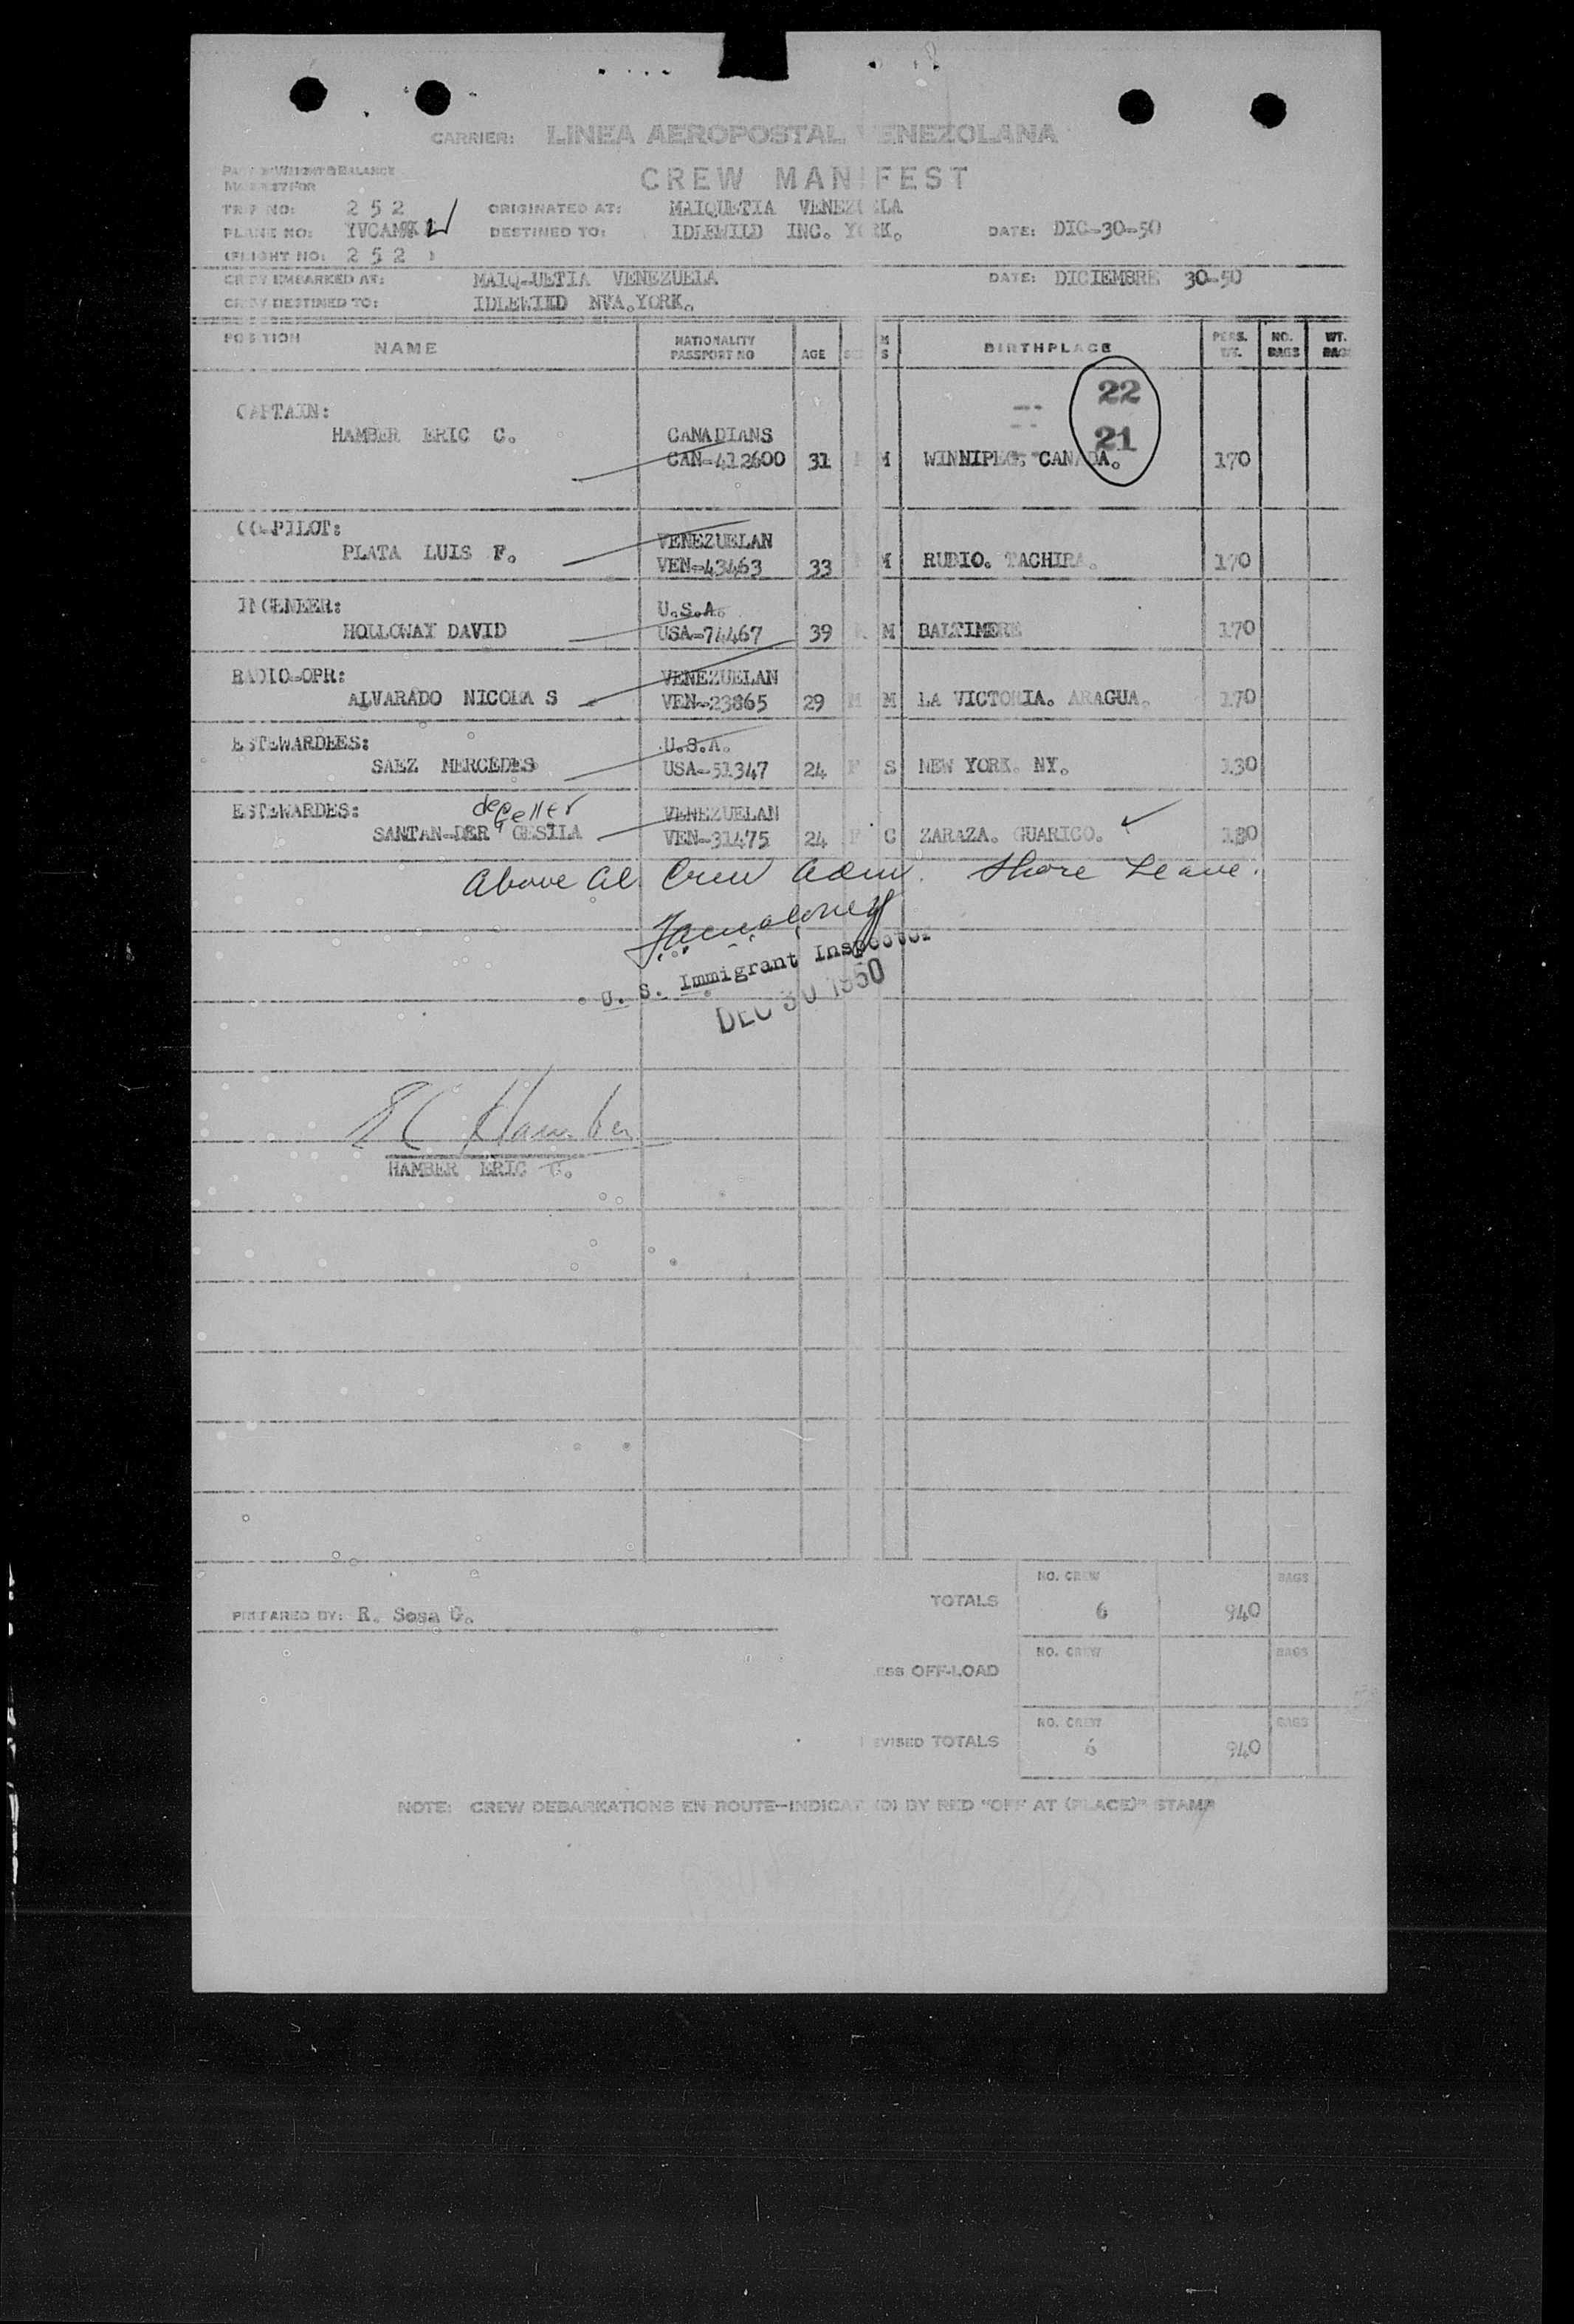 CARRIER: LINEA AEROPOSTAL VENEZOLANA
CREW MANIFEST
TRIP NO: 252 ORIGINATED AT: MAIQUETIA VENEZUELA
PLANE NO: DESTINED TO: IDLEWILD INC. YORK. DATE: DIC-30-50
(FLIGHT NO: 252 )
CREW EMBARKED AT: MAIQ-UETIA VENEZUELA DATE: DICIEMBRE 30-50
CREW DESTINED TO: IDLEWILD NVA.YORK.
POSITION NAME NATIONALITY PASSPORT NO AGE SEX M S BIRTHPLACE PERS. WT. NO. BAGS WT. BAGS
22
21
CAPTAIN:
HAMBER ERIC C. CANADIANS
CAN-412600 31 M WINNIPEG. CANADA. 170
CO-PILOT:
PLATA LUIS F. VENEZUELAN
VEN-43463 33 M RUBIO. TACHIRA. 170
INGENEER: U.S.A.
HOLLOWAY DAVID USA-74467 39 M BALTIMORE 170
RADIO-OPR: VENEZUELAN
ALVARADO NICOLA S VEN-23865 29 M M LA VICTORIA. ARAGUA. 170
ESTEWARDEES: U.S.A.
SAEZ MERCEDES USA-51347 24 F S NEW YORK. NY. 130
ESTEWARDES: de Geller VENEZUELAN
SANTAN-DER GESILA VEN-31475 24 F C ZARAZA. GUARICO. 130
Above al Crew Adm. Shore Leave.
U. S. Immigrant Inspector
DEC 30 1950
E C Hamber
HAMBER ERIC C.
PREPARED BY: R. Sosa G.
TOTALS NO. CREW 6 940 BAGS
ESS OFF-LOAD NO. CREW BAGS
EVISED TOTALS NO. CREW 6 940 BAGS
NOTE: CREW DEBARKATIONS EN ROUTE—INDICAT (D) BY RED "OFF AT (PLACE)" STAMP